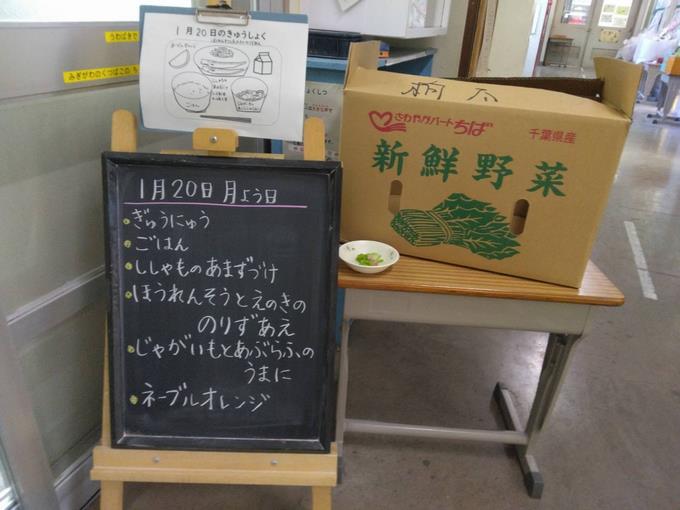 うわばきで
みぎがわのくつばこの
1月20日のきゅうしょく
ごはん
1月20日月よう日
ぎゅうにゅう
ごはん
ししゃものあまずづけ
ほうれんそうとえのきの
のりずあえ
じゃがいもとあぶらふの
うまに
ネーブルオレンジ
さわやかハートちば
千葉県産
新鮮野菜